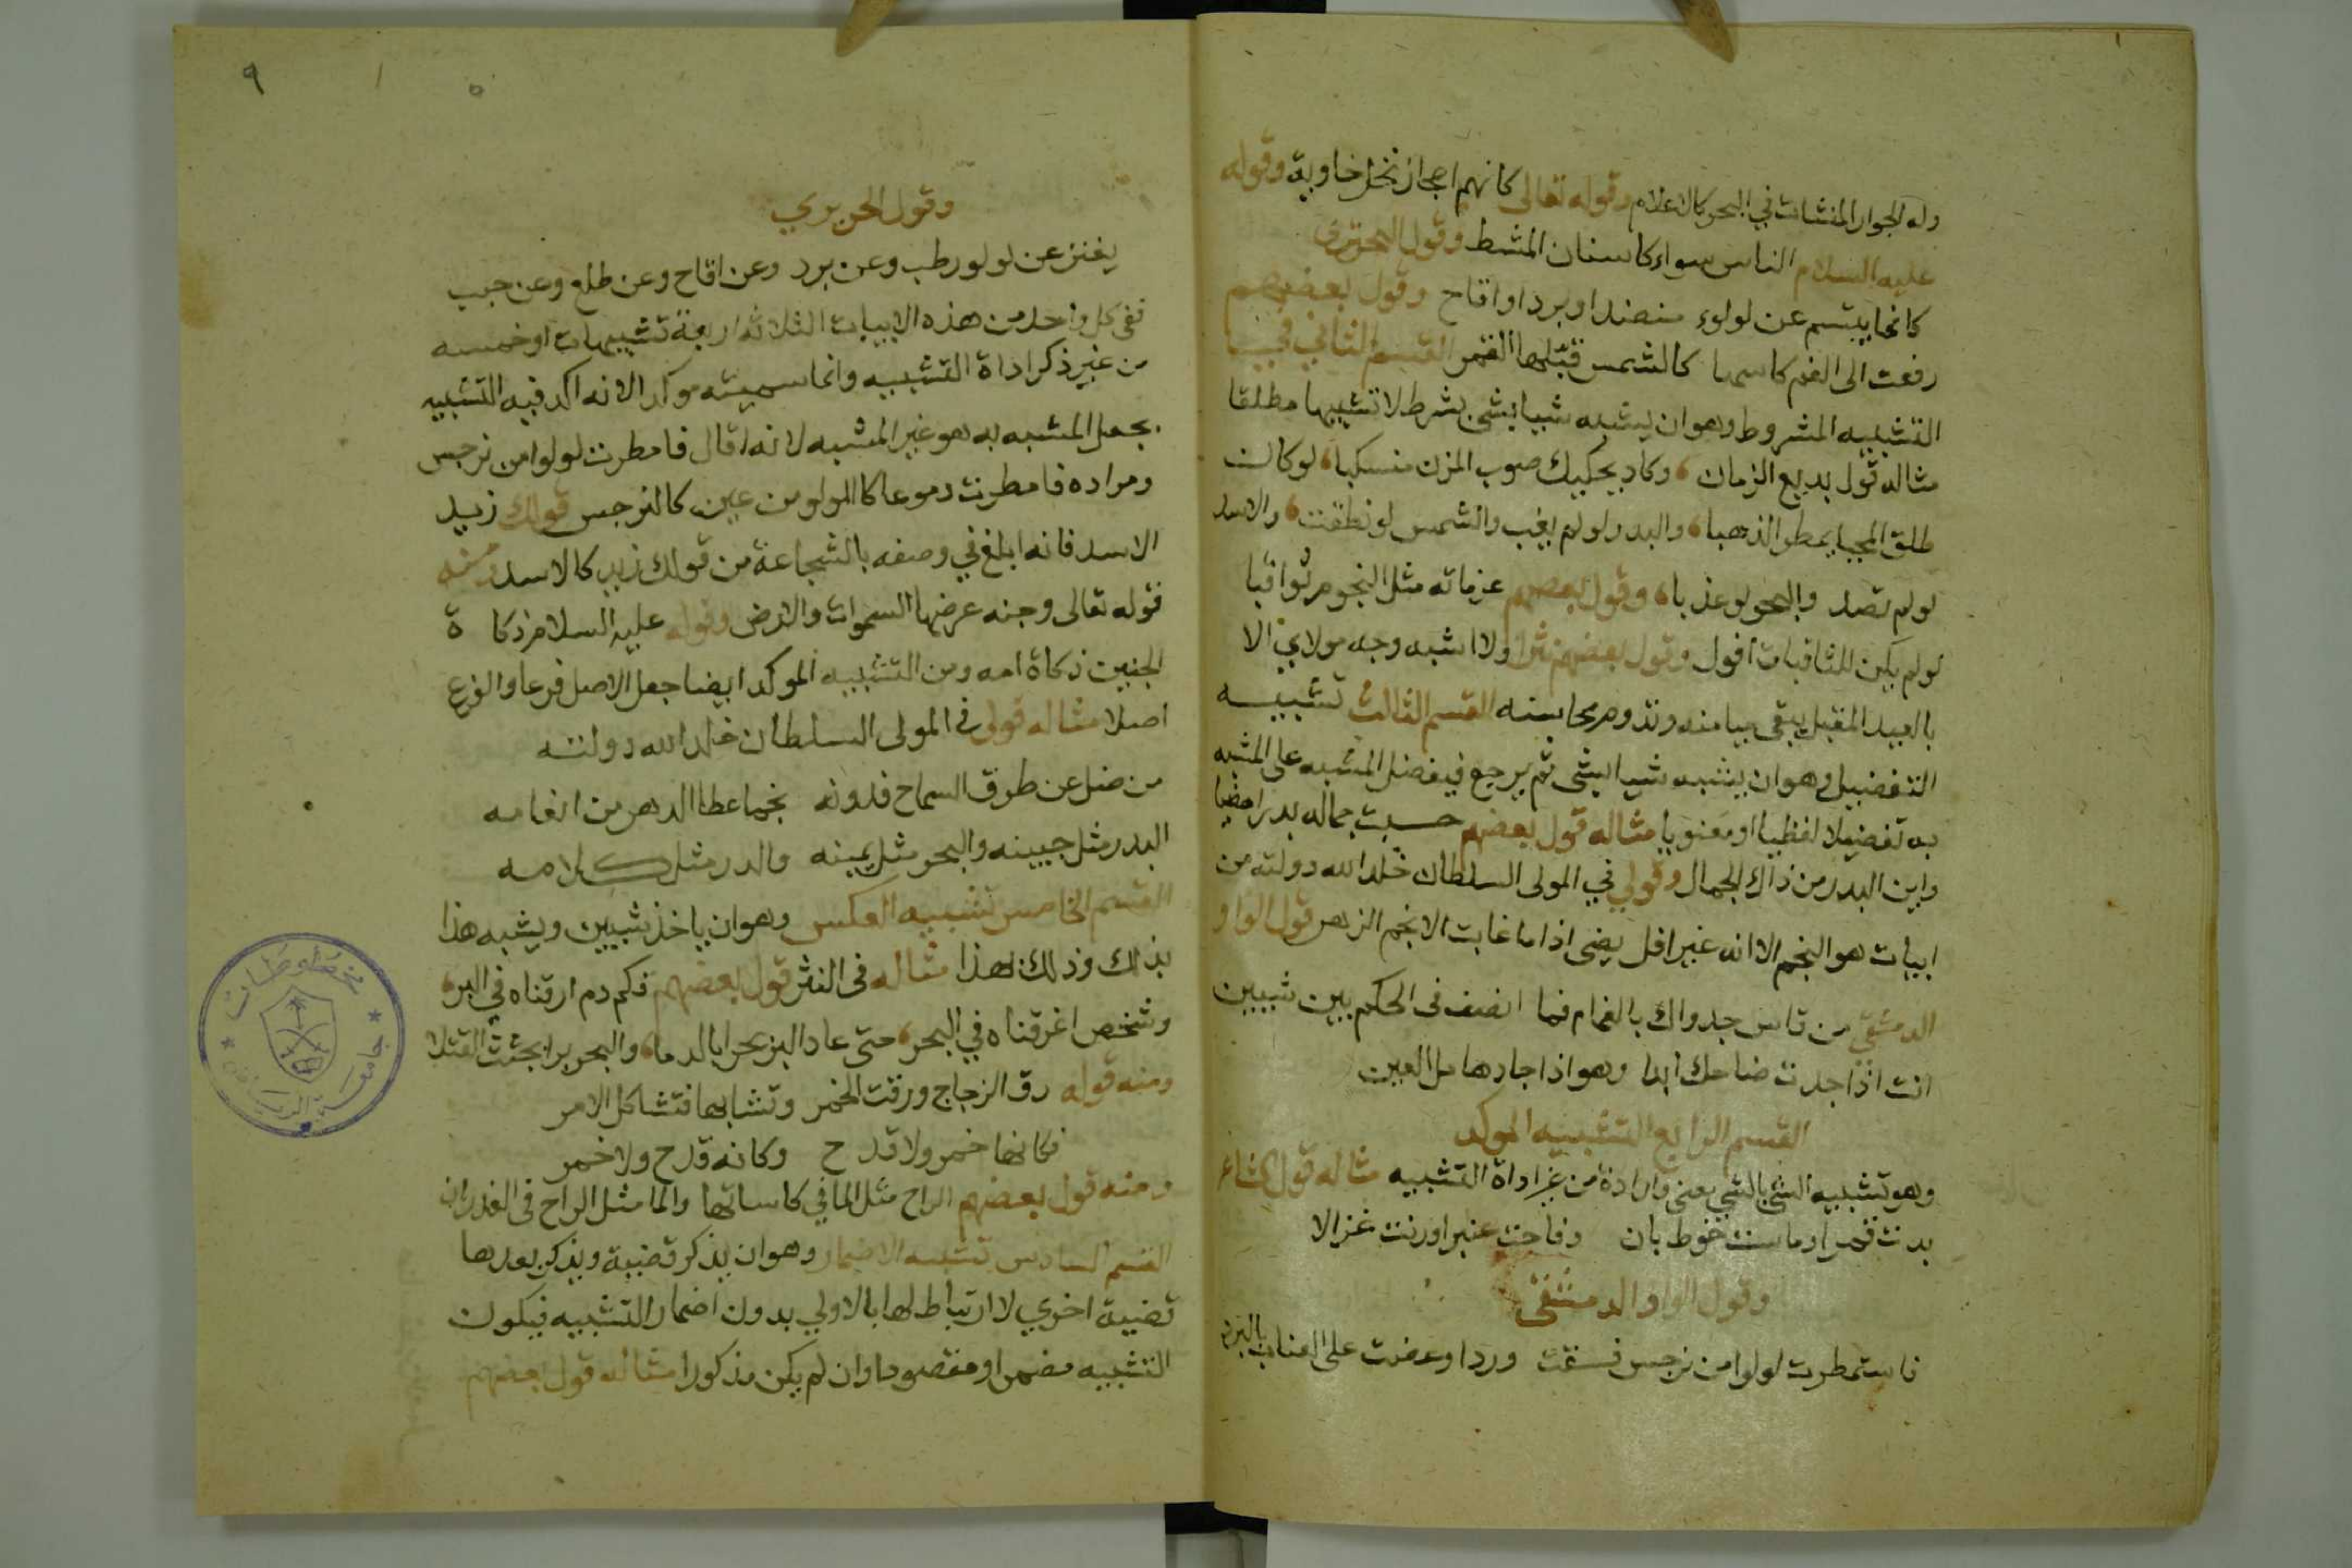 وله الجوار المنشات في البحر كالاعلام وقوله تعالى كانهم اعجاز نخل خاوية وقوله
عليه السلام الناس سواء كاسنان المشط وقول البحتري
كانما يبتسم عن لولوء منضدا او برد او اقاح وقول بعضهم
رفعت الى الفم كاسها كالشمس قبّلها القمر القسم الثاني في
التشبيه المشروط وهو ان يشبه شيا بشي بشرط لا تشبيها مطلقا
مثاله قول بديع الزمان وكاد يحكيك صوب المزن منسكبا لو كان
طلق المحيا يمطر الذهبا والبدر لو لم يغب والشمس لو نطقت والاسد
لو لم تصد والبحر لو عذبا وقول بعضهم عزماته مثل النجوم ثواقبا
لو لم يكن للثاقبات افول وقول بعضهم نثرا ولا اشبه وجه مولاي الا
بالعيد المقبل يبقى ميامنه وتدوم محاسنه القسم الثالث تشبيه
التفضيل وهو ان يشبه شيا بشي ثم يرجع فيفضل المشبه على المشبه
به تفضيلا لفظيا او معنويا مثاله قول بعضهم حسبت جماله بدرا مضيا
واين البدر من ذاك الجمال وقولي في المولى السلطان خلد الله دولته من
ابيات هو النجم الا انه غير افل يضى اذا ما غابت الانجم الزهر قول الواو
الدمشقي من قاس جدواك بالغمام فما انصف في الحكم بين شيبين
انت اذا جدت ضاحك ابدا وهو اذا جاد هامل العين
القسم الرابع التشبيه الموكد
وهو تشبيه الشي بالشي معنى وارادة من غير اداة التشبيه مثاله قول الشاعر
بدت قمرا وماست خوط بان وفاحت عنبرا ورنت غزالا
وقول الواو الدمشقى
فاستمطرت لولوا من نرجس فسقت وردا وعضت على العناب بالبرد
٩
وقول الحريري
يفتر عن لولو رطب وعن برد وعن اقاح وعن طلع وعن حبب
ففي كل واحد من هذه الابيات الثلاثه اربعة تشبيهات او خمسه
من غير ذكر اداة التشبيه وانما سميته موكدا لانه اكد فيه التشبيه
بجعل المشبه به هو غير المشبه لانه قال فامطرت لولوا من نرجس
ومراده فامطرت دموعا كاالولو من عين كالنرجس قولك زيد
الاسد فانه ابلغ في وصفه بالشجاعة من قولك زيد كالاسد ومنه
قوله تعالى وجنه عرضها السموات والارض وقوله عليه السلام زكا ة
الجنين زكاة امه ومن التشبيه الموكد ايضا جعل الاصل فرعا والفرع
اصلا مثاله قولى في المولى السلطان خلد الله دولته
من ضل عن طرق السماح فدونه نجما عطا الدهر من انعامه
البدر مثل جبينه والبحر مثل يمينه والدر مثل كلامه
القسم الخامس تشبيه العكس وهو ان ياخذ شيين ويشبه هذا
بذلك وذلك لهذا مثاله فى النثر قول بعضهم فكم دم ارقناه في البر
وشخص اغرقناه في البحر حتى عاد البر بحرا بالدما والبحر برا بجثث القتلا
ومنه قوله رق الزجاج ورقت الخمر وتشابها فتشاكل الامر
فكانها خمر ولا قد ح وكانه قدح ولا خمر
ومنه قول بعضهم الراح مثل الما في كاساتها والما مثل الراح فى الغدران
القسم السادس تشبيه الاضمار وهو ان يذكر قضية ويذكر بعدها
قضية اخرى لا ارتباط لها بالاولي بدون اضمار التشبيه فيكون
التشبيه مضمرا ومقصودا وان لم يكن مذكورا مثاله قول بعضهم
مخطوطات
جامعة الرياض